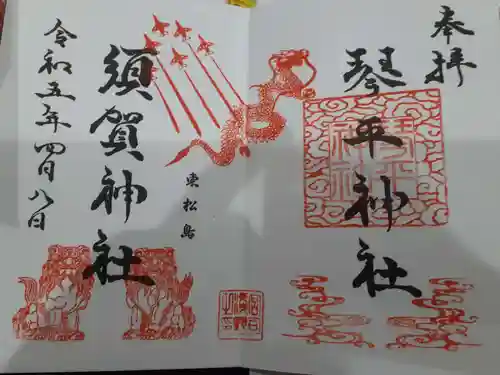 奉拝
琴平神社
琴平神社
東松島
須賀神社
令和五年四月八日